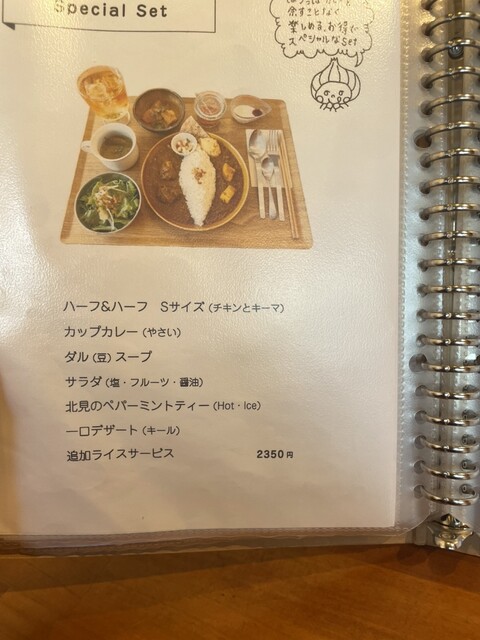 Special Set
余すことなく
楽しめる、お得で
スペシャルなSet
ハーフ&ハーフ Sサイズ (チキンとキーマ)
カップカレー (やさい)
ダル (豆) スープ
サラダ (塩・フルーツ・醤油)
北見のペパーミントティー (Hot・Ice)
一口デザート (キール)
追加ライスサービス 2350円